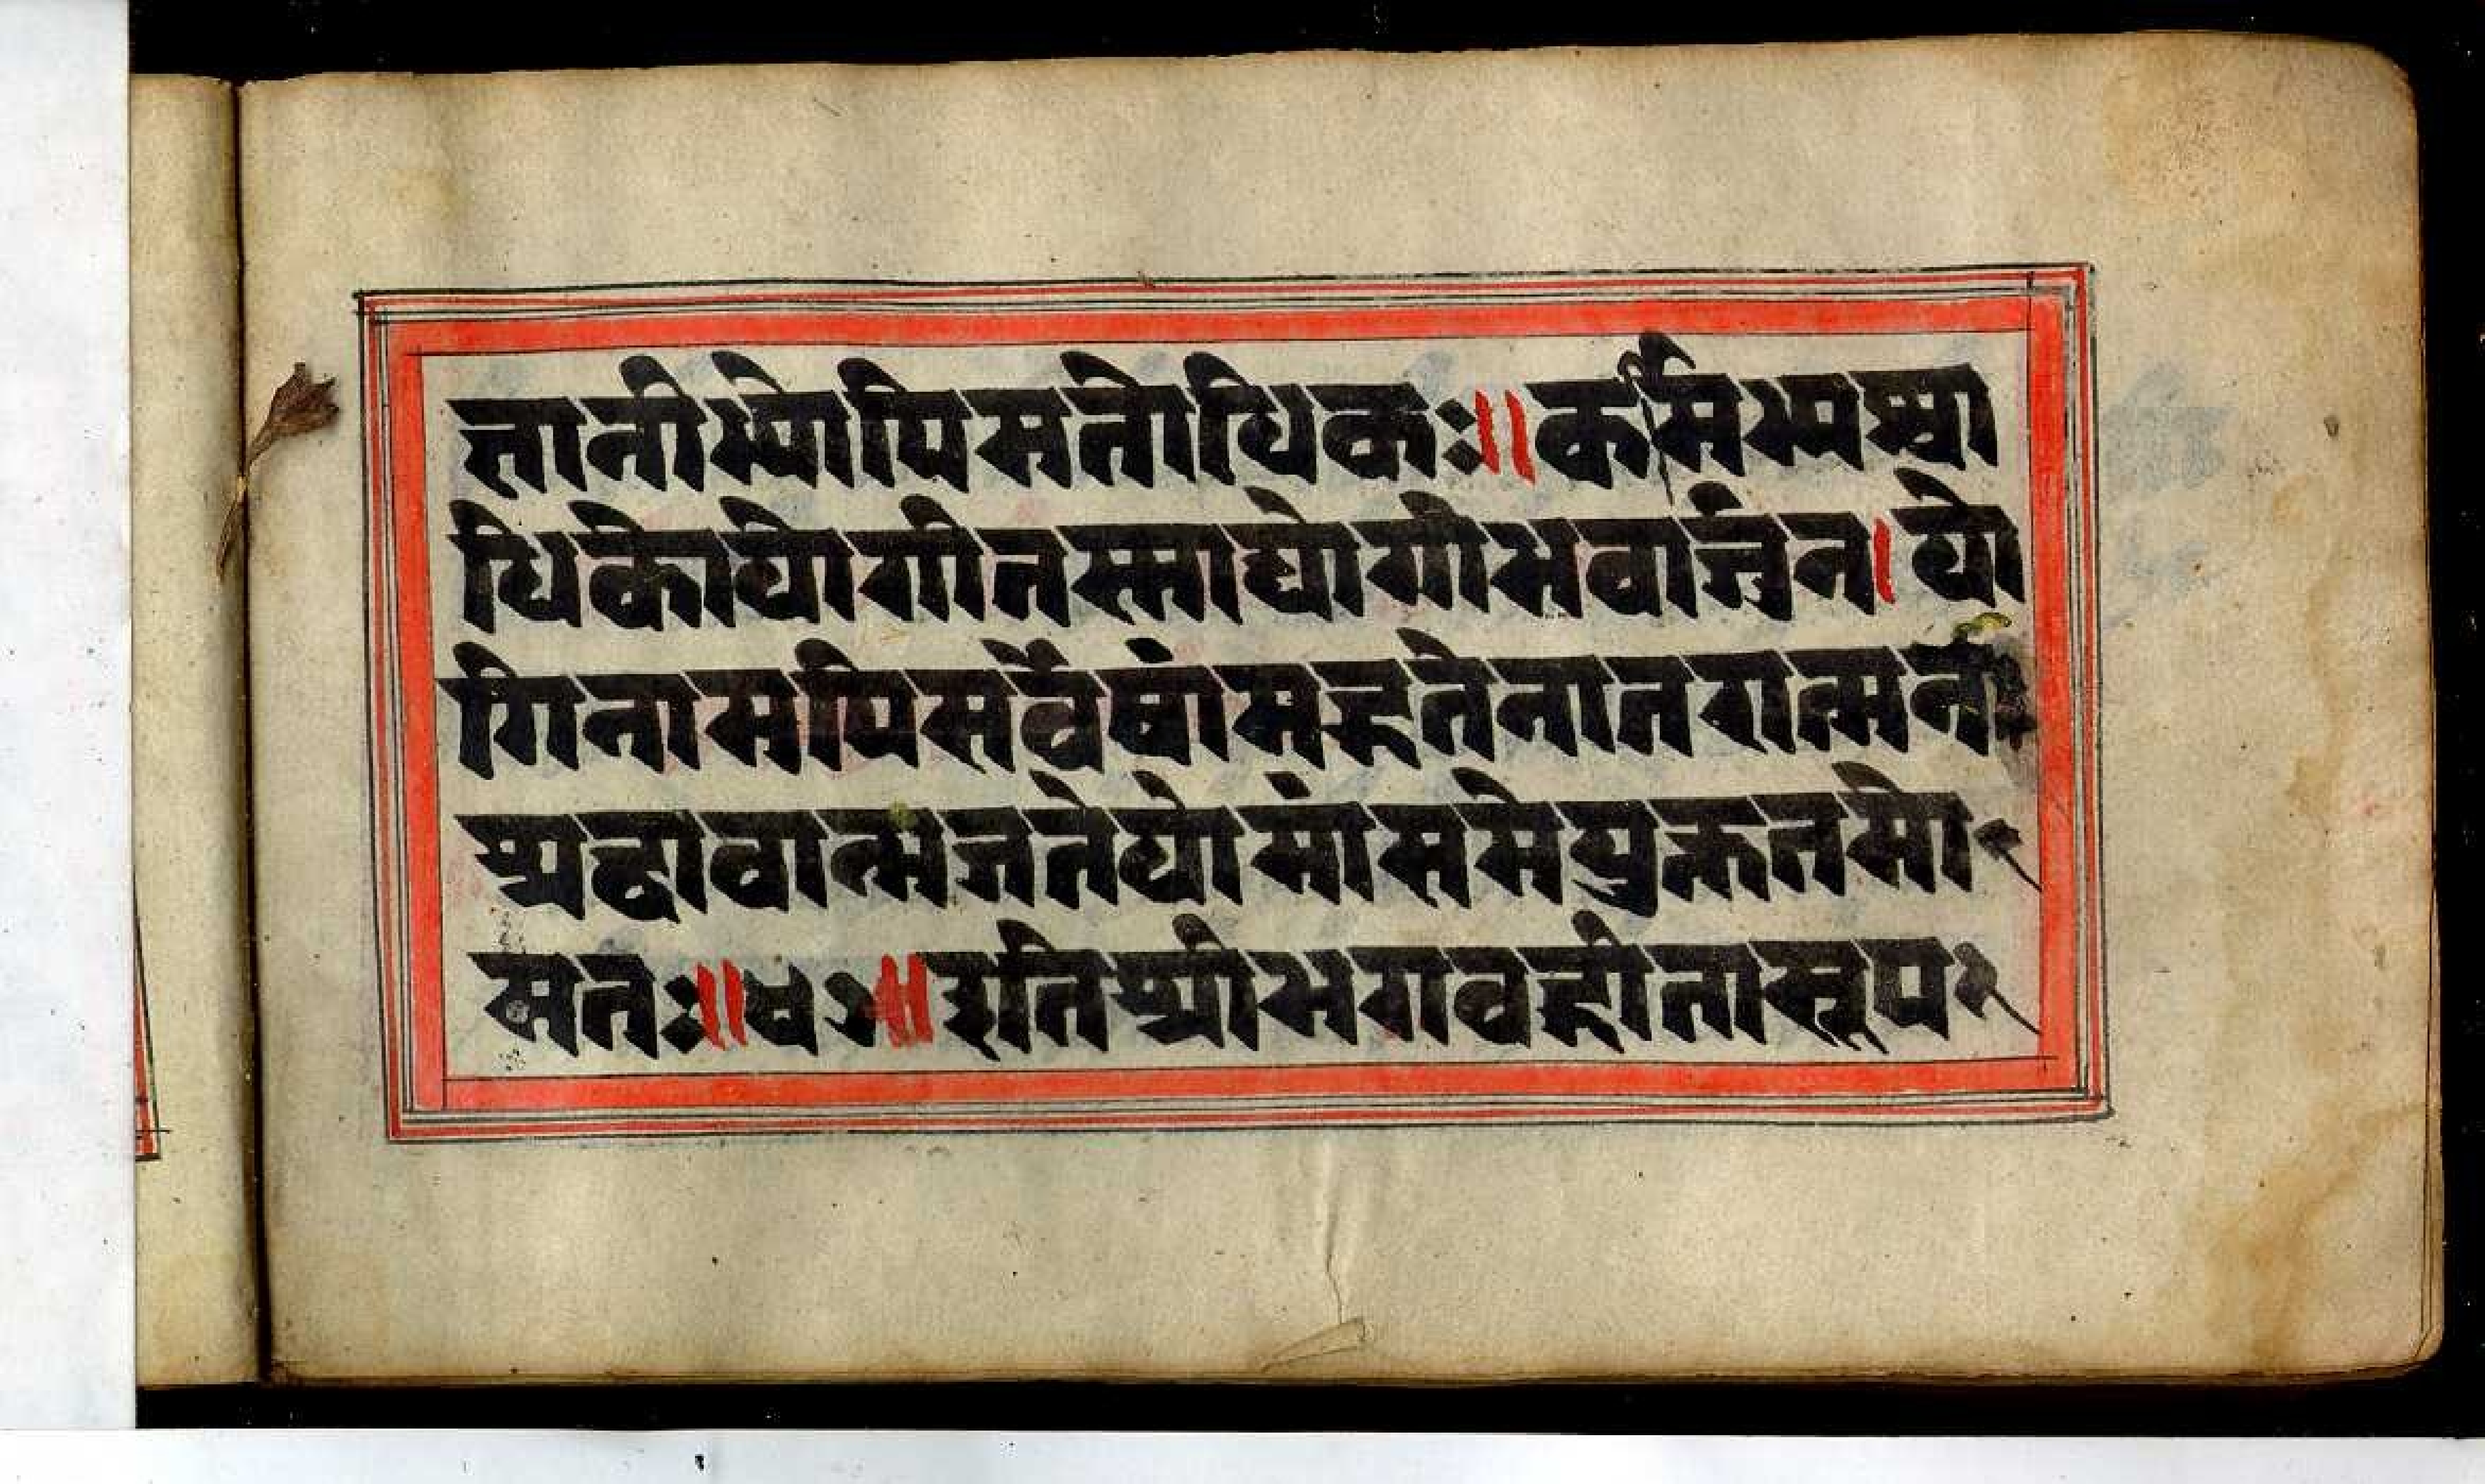 ज्ञानीभ्योपिमतोधिकः॥कर्मिभ्यश्चा
धिकोयोगीतस्माद्योगीभवार्जुन।यो
गिनामपिसर्वेषांमद्गतेनांतरात्मना
श्रद्धावान्भजतेयोमांसमेयुक्ततमो
मतः॥४७॥इतिश्रीभगवद्गीतासूप